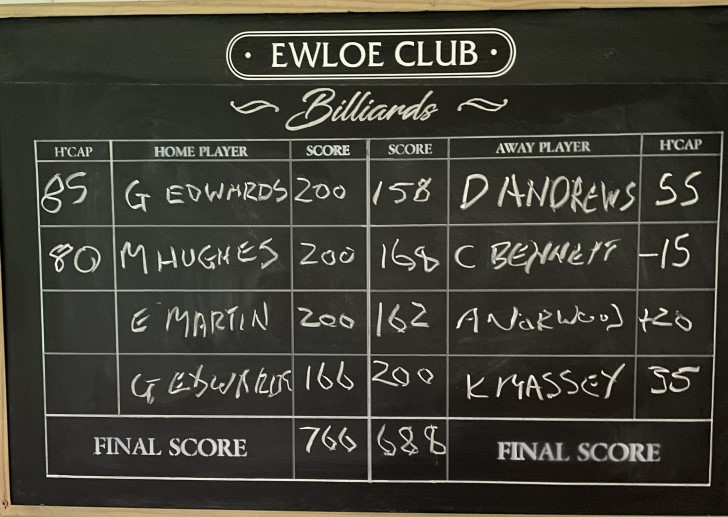 EWLOE CLUB
Billiards
H'CAP HOME PLAYER SCORE SCORE AWAY PLAYER H'CAP
85 G EDWARDS 200 158 D ANDREWS 55
80 M HUGHES 200 168 C BENNETT -15
E MARTIN 200 162 A NORWOOD +20
G EDWARDS 166 200 K MASSEY 35
FINAL SCORE 766 688 FINAL SCORE